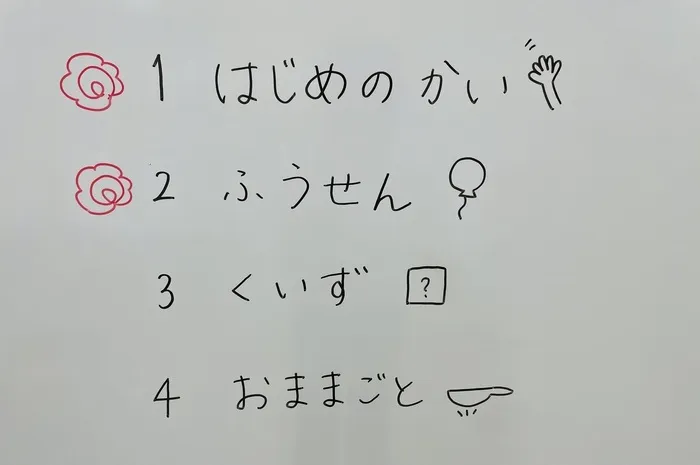 1 はじめのかい
2 ふうせん
3 くいず ?
4 おままごと